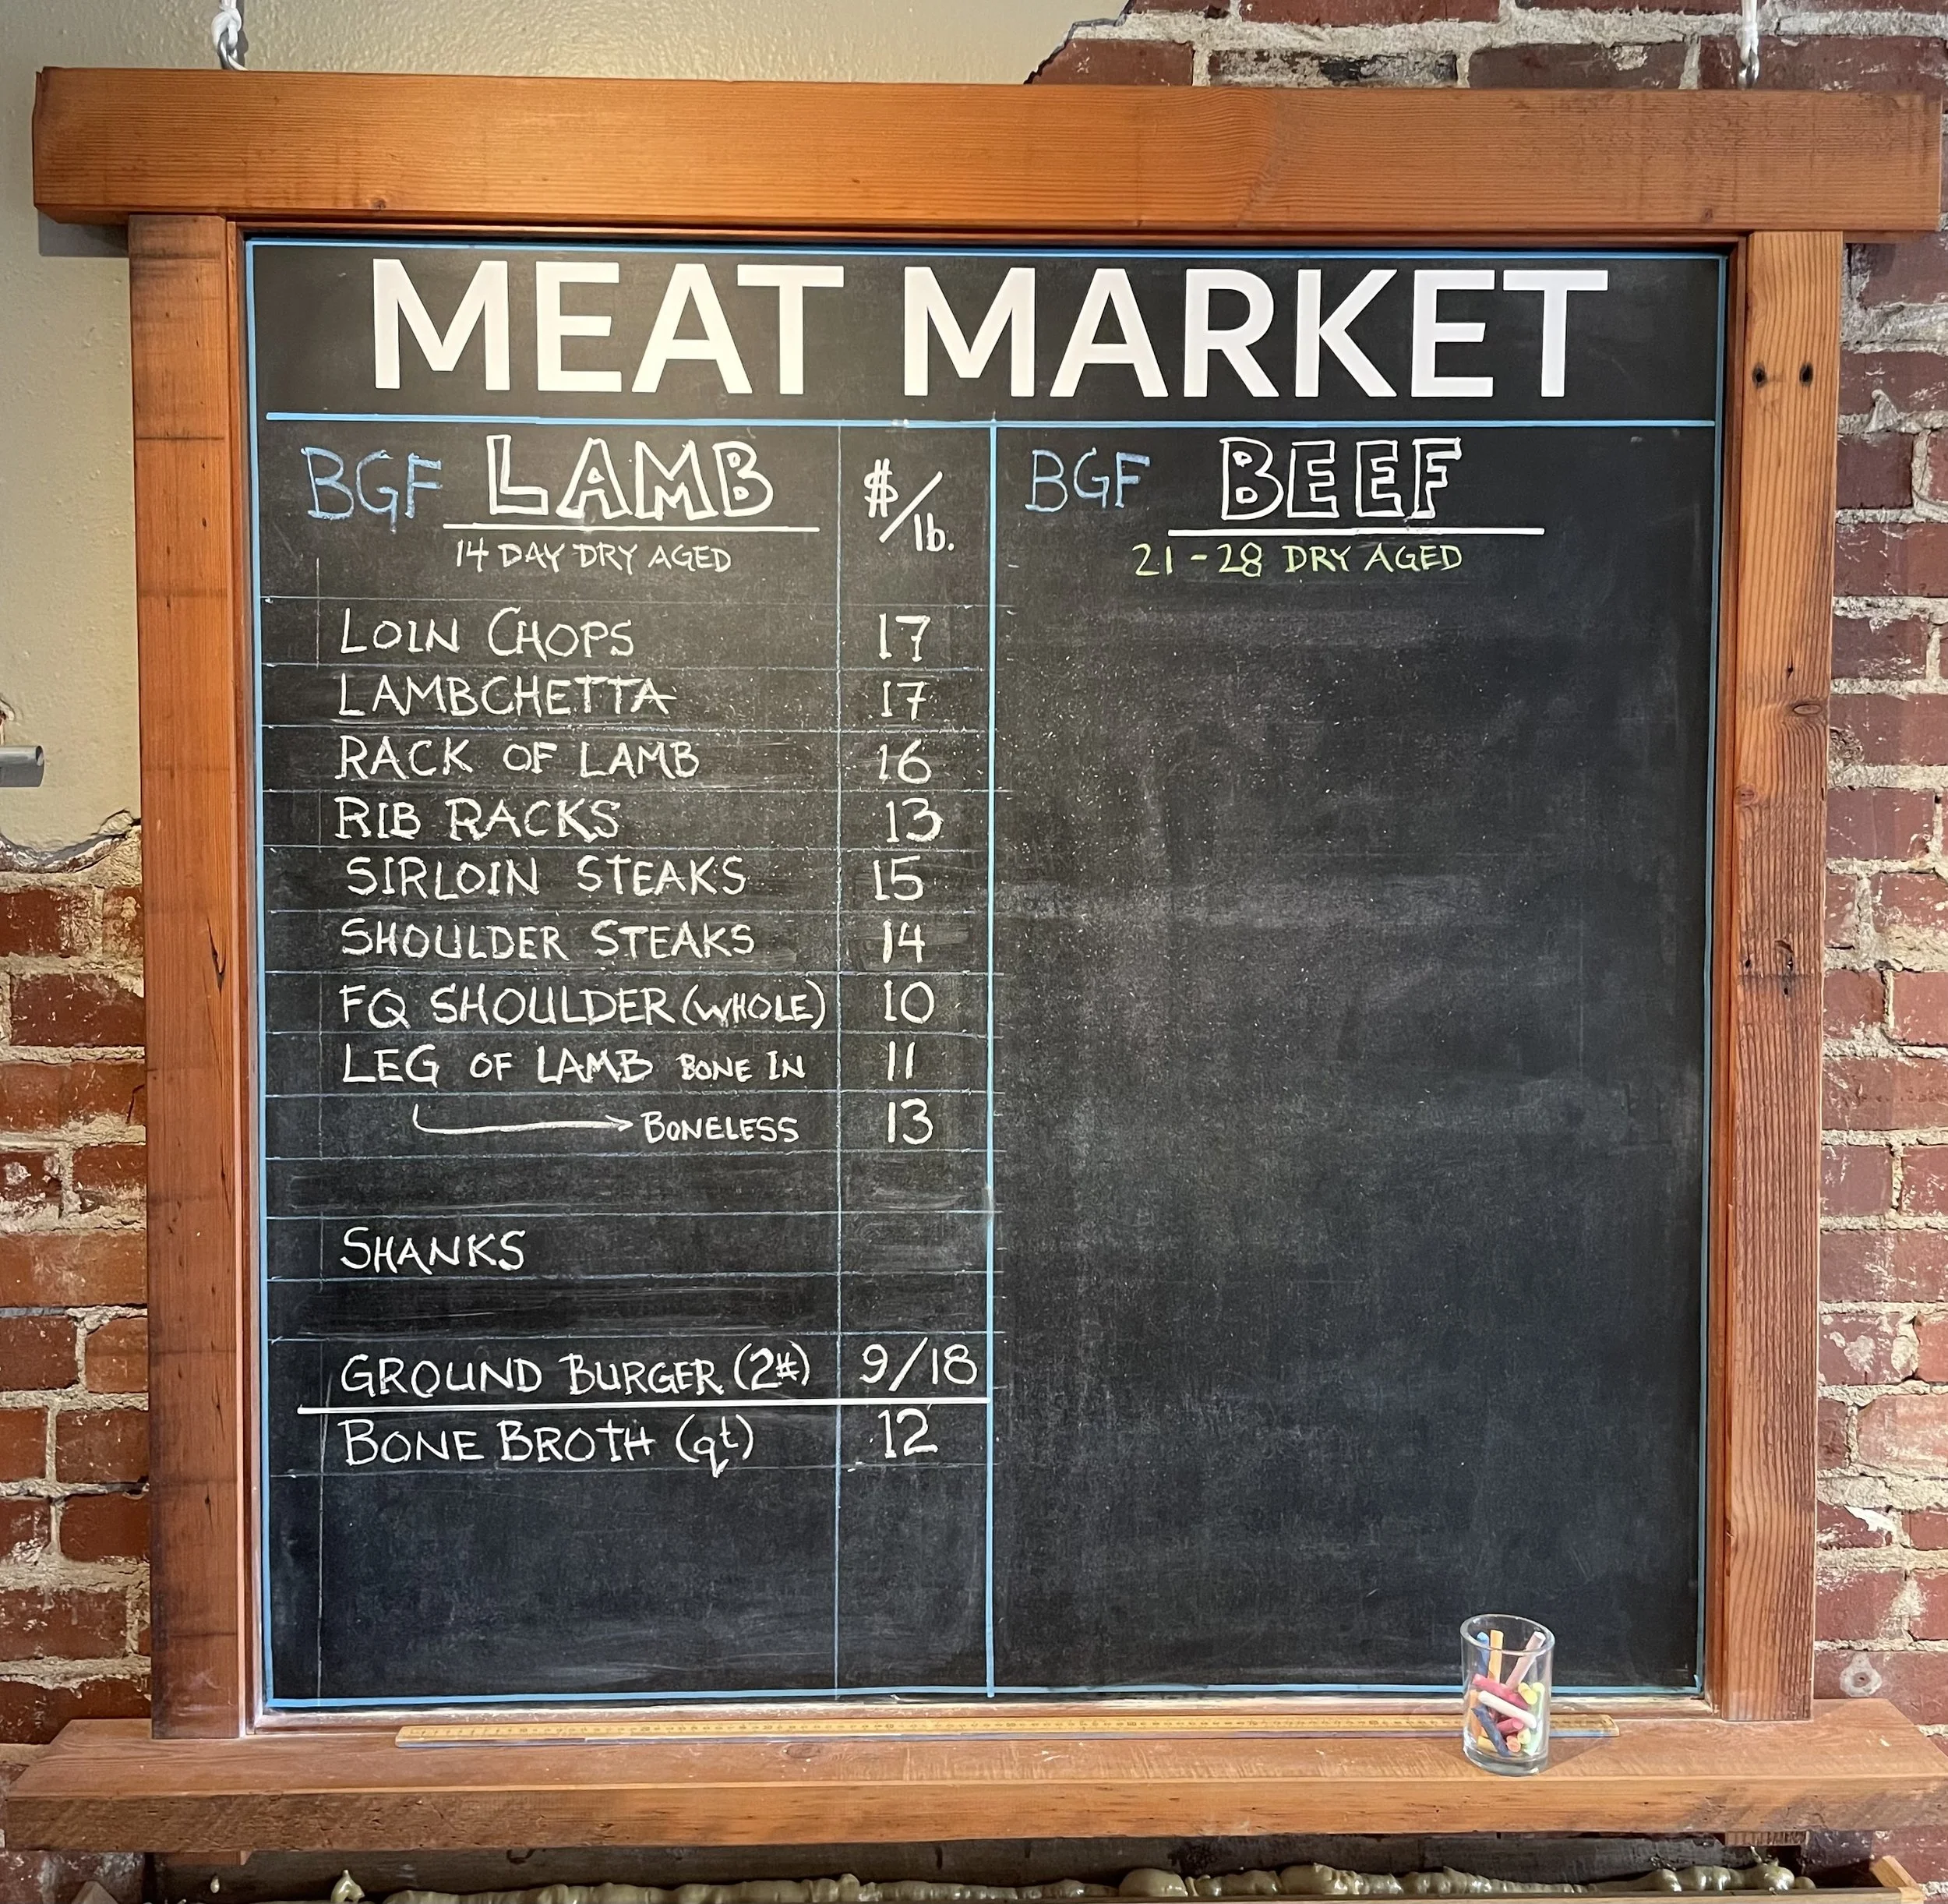 MEAT MARKET
BGF LAMB $/lb.
14 DAY DRY AGED
LOIN CHOPS 17
LAMBCHETTA 17
RACK OF LAMB 16
RIB RACKS 13
SIRLOIN STEAKS 15
SHOULDER STEAKS 14
FQ SHOULDER (WHOLE) 10
LEG OF LAMB BONE IN 11
BONELESS 13
SHANKS
GROUND BURGER (2#) 9/18
BONE BROTH (qt) 12
BGF BEEF
21-28 DRY AGED